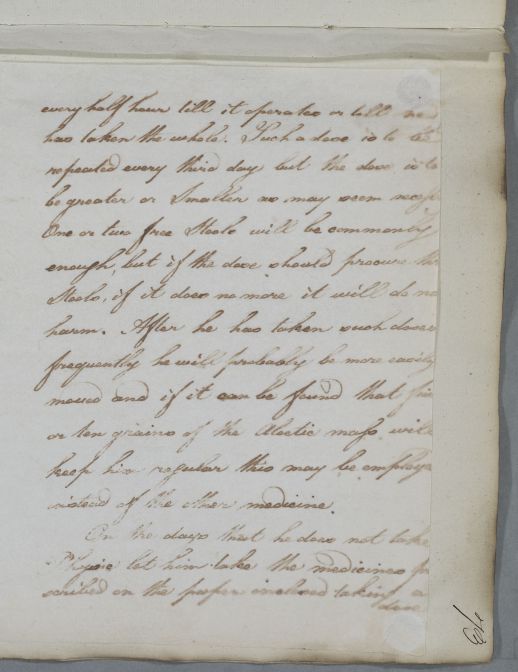 every half hour till it operates or till
has taken the whole. Such a dose is to be
repeated every third day but the dose is to
be greater or Smaller as may seem
One or two free Stools will be commonly
enough, but if the dose should procure
Stools, if it does no more it will do no
harm. After he has taken such doses
frequently he will probably be more easily
moved and if it can be found that
or ten grains of the Aloetic mass will
keep him regular this may be employ
instead of the other medicine.
On the days that he does not take
Physic let him take the medicines
scribed on the paper inclosed taking a
dose